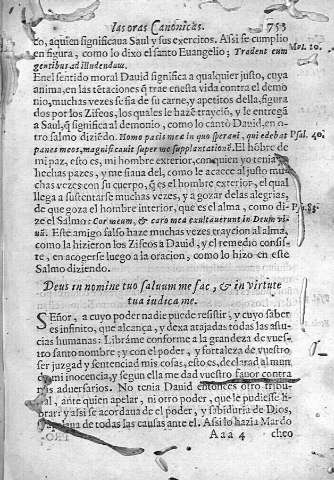 las oras Canonicas. 753
co, aquien significaua Saul y sus exercitos. Assi se cumplio
en figura, como lo dixo el santo Euangelio; Tradent eum
gentibus ad illudendum.
En el sentido moral Dauid significa a qualquier justo, cuya
anima, en las tētaciones q̄ trae en esta vida contra el demo-
nio, muchas vezes se fia de su carne, y apetitos della, figura
dos por los Zifeos, los quales le hazē trayciō, y le entregā
a Saul, q̄ significa al demonio, como lo cantò Dauid, en o-
tro salmo diziēdo. Homo pacis meæ in quo speraui, qui edebat
panes meos, magnificauit super me supplantationē. El hōbre de
mi paz, esto es, mi hombre exterior, con quien yo tenia
hechas pazes, y me fiaua del, como le acaece al justo mu
chas vezes con su cuerpo, q̄ es el hombre exterior, el qual
llega a sustentarse muchas vezes, y a gozar de las alegrias,
de que goza el hombre interior, que es el alma, como di-
ze el Salmo: Cor meum, & caro mea exultauerunt in Deum vi
uū. Este amigo falso haze muchas vezes traycion al alma,
como la hizieron los Zifeos a Dauid, y el remedio consi-
ste, en acogerse luego a la oracion, como lo hizo en este
Salmo diziendo.
Mat. 20.
Psal. 40.
Ps. 83.
Deus in nomine tuo saluum me fac, & in virtute
tua iudica me.
SEñor, a cuyo poder nadie puede resistir, y cuyo saber
es infinito, que alcança, y dexa atajadas todas las asu-
cias humanas: Librame conforme a la grandeza de vues-
tro santo nombre; y con el poder, y fortaleza de vuestro
ser juzgad y sentenciad mis cosas, esto es, declarad al mun
do mi inocencia, y segun ella me dad vuestro fauor contra
mis aduersarios. No tenia Dauid entonces otro tribu-
nal, ante quien apelar, ni otro poder, que le pudiesse lib-
rar: y assi se acorda de el poder, y sabiduria de Dios,
de todas las causas ante el. Assi lo hazia Mardo
Aaa 4 cheo